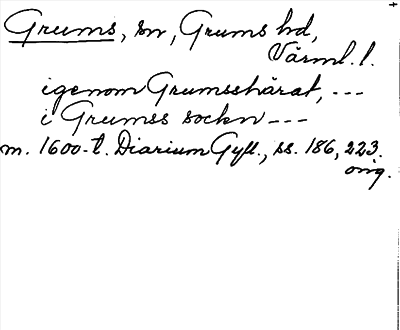 Grums, sn, Grums hd,
Värml. l.
igenom Grumsshärat, ---
i Grumss sockn ---
m. 1600-t. Diarium Gyll., ss. 186, 223.
orig.